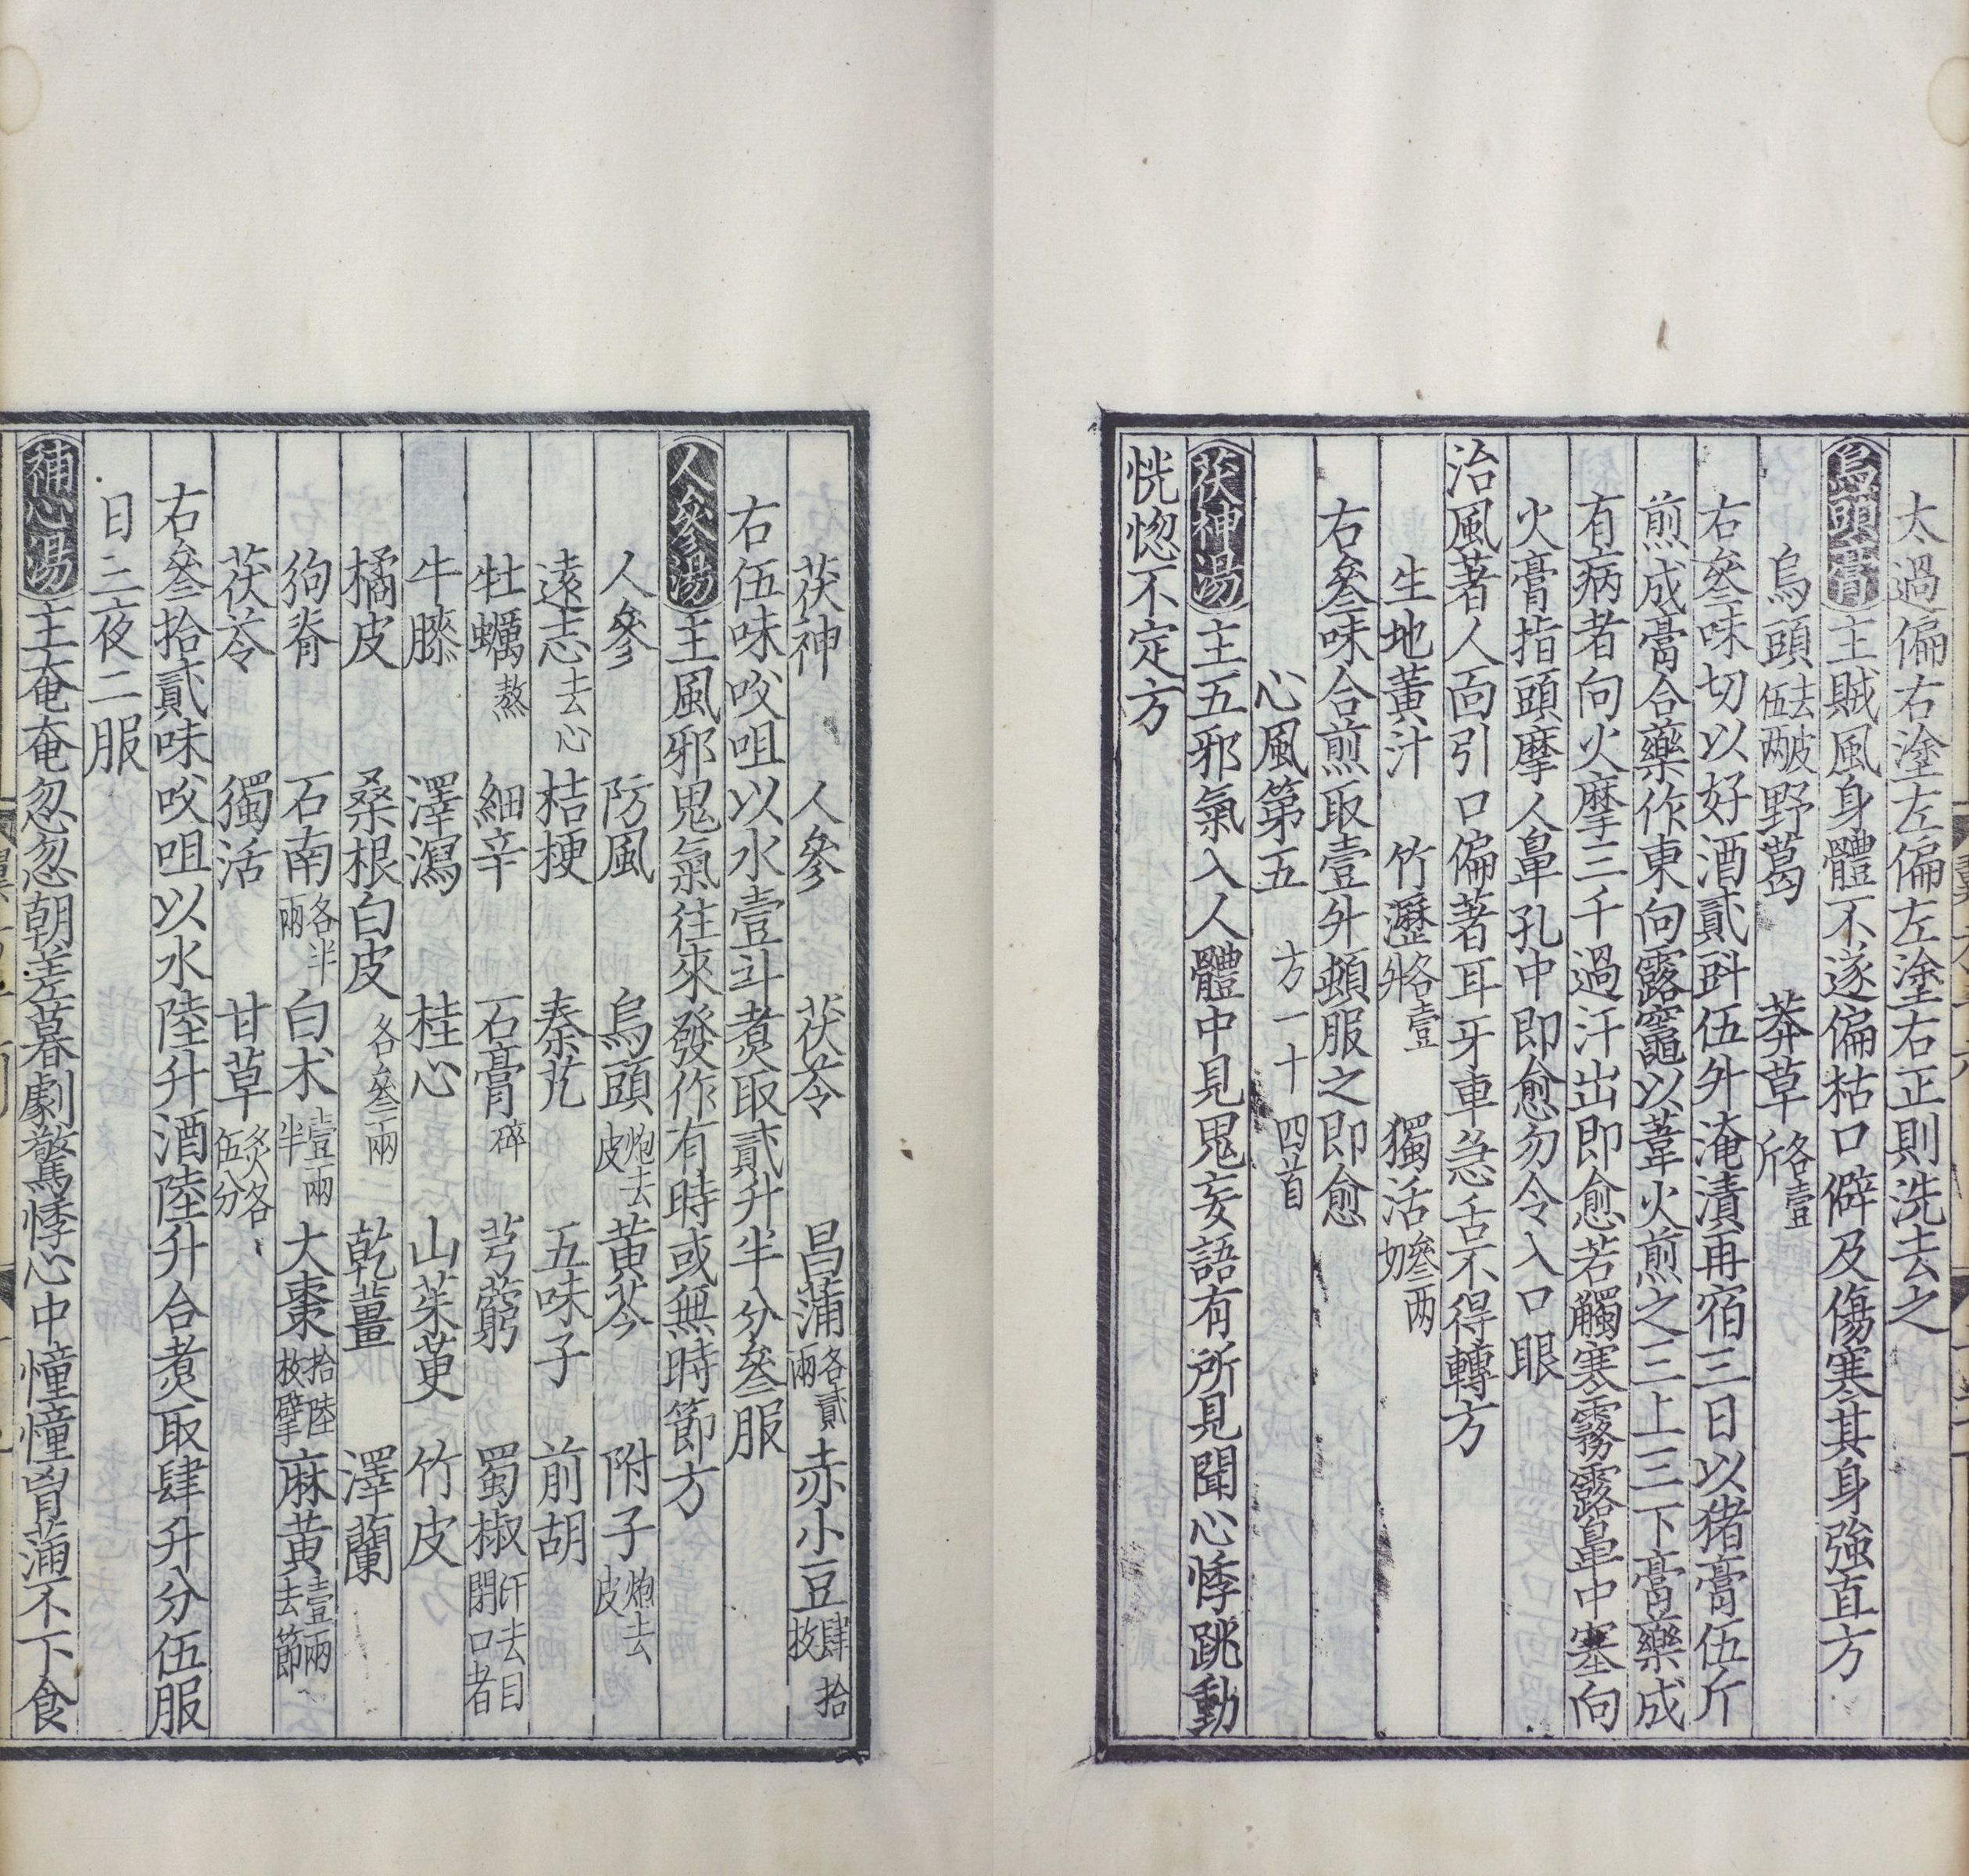 太過偏右塗左偏左塗右正則洗去之
烏頭膏主賊風身體不遂偏枯口僻及傷寒其身強直方
烏頭去皮伍兩野葛莽草各壹斤
右叄味切以好酒貳㪷伍升淹漬再宿三日以猪膏伍斤
煎成膏合藥作東向露竈以葦火煎之三上三下膏藥成
有病者向火摩三千過汗出即愈若觸寒霧露鼻中塞向
火膏指頭摩人鼻孔中即愈勿令入口眼
治風著人面引口偏著耳牙車急舌不得轉方
生地黃汁竹瀝各壹升獨活叄兩切
右叄味合煎取壹升頓服之即愈
心風第五方一十四首
茯神湯主五邪氣入人體中見鬼妄語有所見聞心悸跳動
恍惚不定方
茯神人參茯苓昌蒲各貳兩赤小豆肆拾枚
右伍味㕮咀以水壹斗煮取貳升半分叄服
人參湯主風邪鬼氣往來發作有時或無時節方
人參防風烏頭炮去皮黃芩附子炮去皮
遠志去心桔梗秦艽五味子前胡
牡蠣熬細辛石膏碎芎藭蜀椒汗去目閉口者
牛膝澤瀉桂心山茱萸竹皮
橘皮桑根白皮各叄兩乾薑澤蘭
狗脊石南各半兩白术壹兩半大棗拾陸枚擘麻黃壹兩去節
茯苓獨活甘草炙各伍分
右叄拾貳味㕮咀以水陸升酒陸升合煮取肆升分伍服
日三夜二服
補心湯主奄奄忽忽朝差暮劇驚悸心中憧憧胷滿不下食